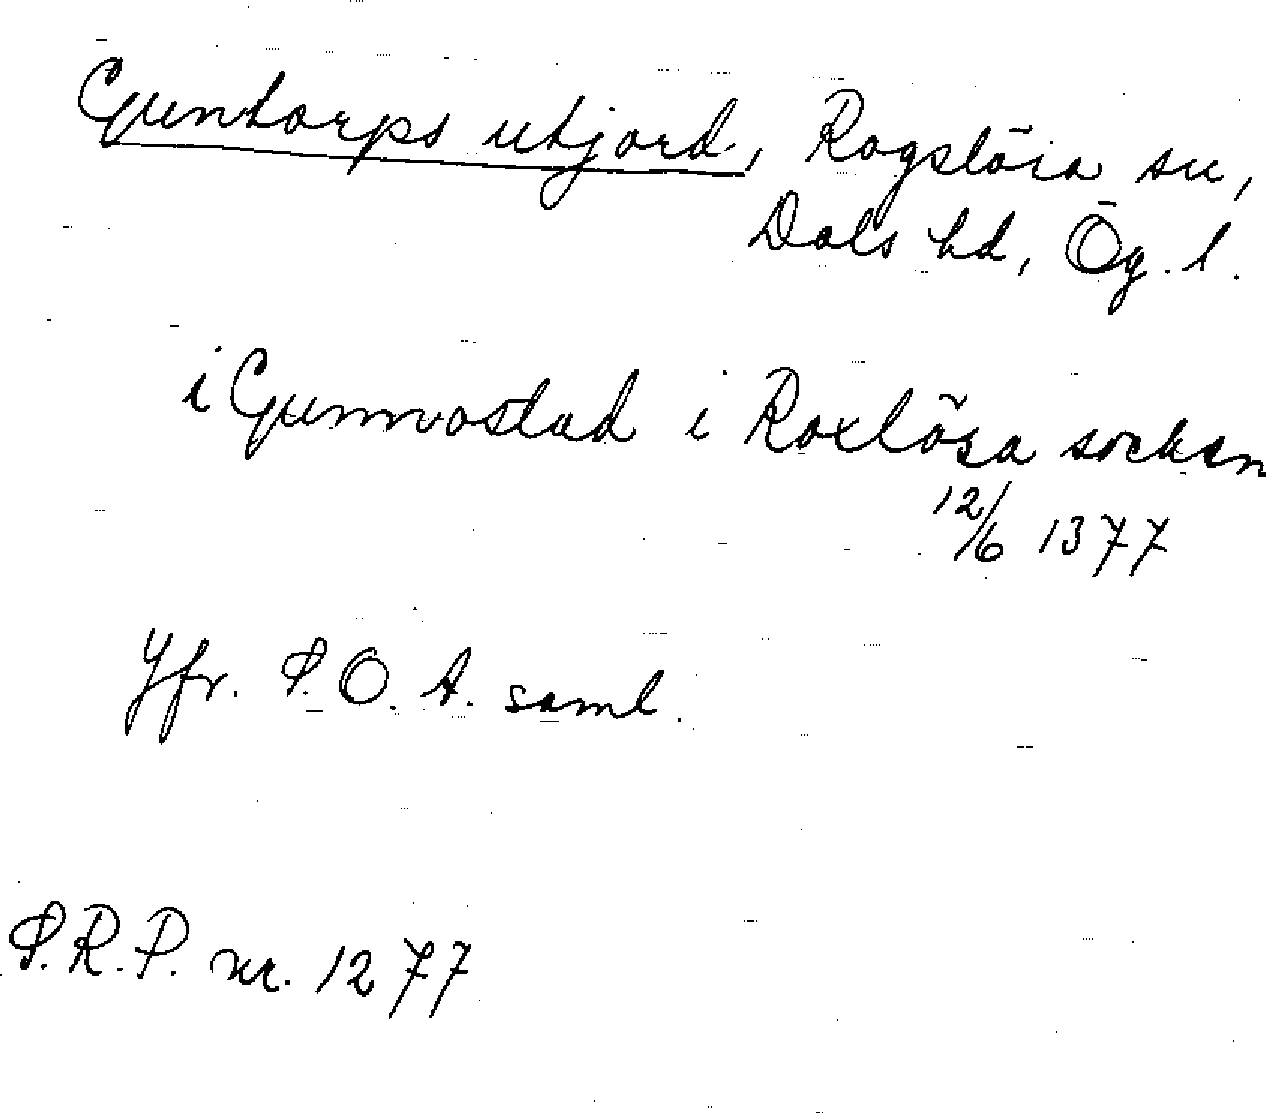 Guntorps utjord, Rogslösa sn,
Dals hd, Ög. l.
i Gunnvastad i Roxlösa sokn
12/6 1377
Jfr. S.O.A. saml.
S.R.P. nr. 1277